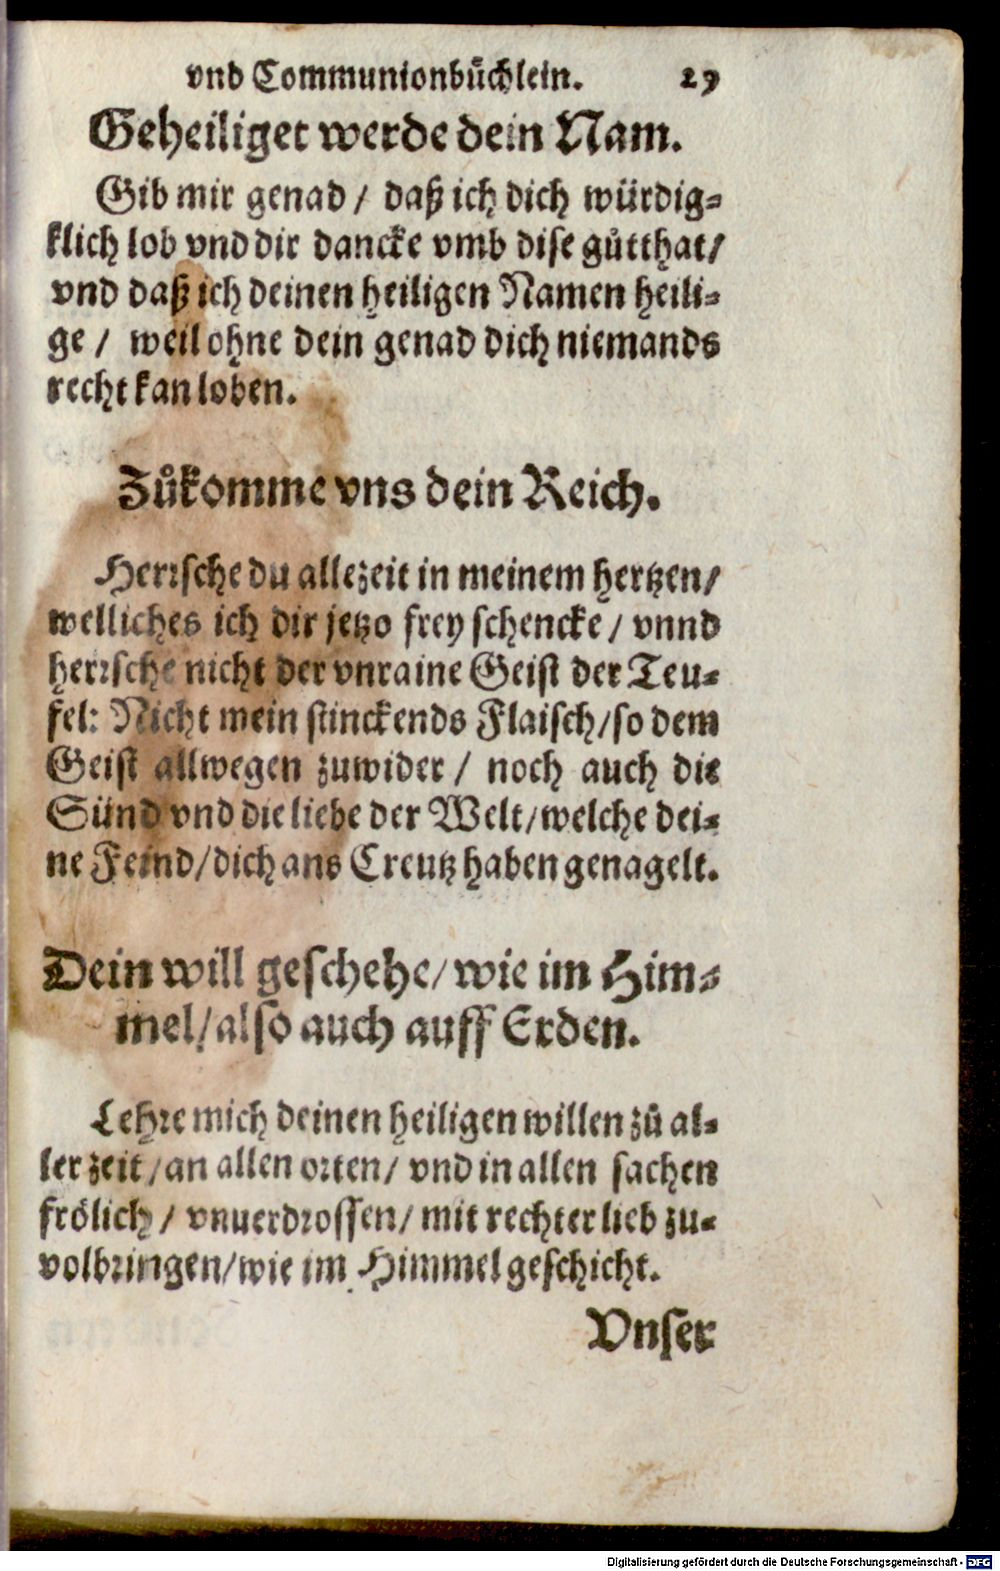 vnd Communionbůchlein. 29
Geheiliget werde dein Nam.
Gib mir genad / daß ich dich würdig⸗
klich lob vnd dir dancke vmb dise gůtthat/
vnd daß ich deinen heiligen Namen heili⸗
ge / weil ohne dein genad dich niemands
recht kan loben.
Zůkomme vns dein Reich.
Herrsche du allezeit in meinem hertzen/
welliches ich dir jetzo frey schencke / vnnd
herrsche nicht der vnraine Geist der Teu⸗
fel: Nicht mein stinckends Flaisch/so dem
Geist allwegen zuwider / noch auch die
Sünd vnd die liebe der Welt/welche dei⸗
ne Feind/dich ans Creutz haben genagelt.
Dein will geschehe/wie im Him⸗
mel/also auch auff Erden.
Lehre mich deinen heiligen willen zů al⸗
ler zeit/an allen orten/ vnd in allen sachen
frölich/ vnuerdrossen/ mit rechter lieb zu⸗
volbringen/wie im Himmel geschicht.
Vnser
Digitalisierung gefördert durch die Deutsche Forschungsgemeinschaft - DFG